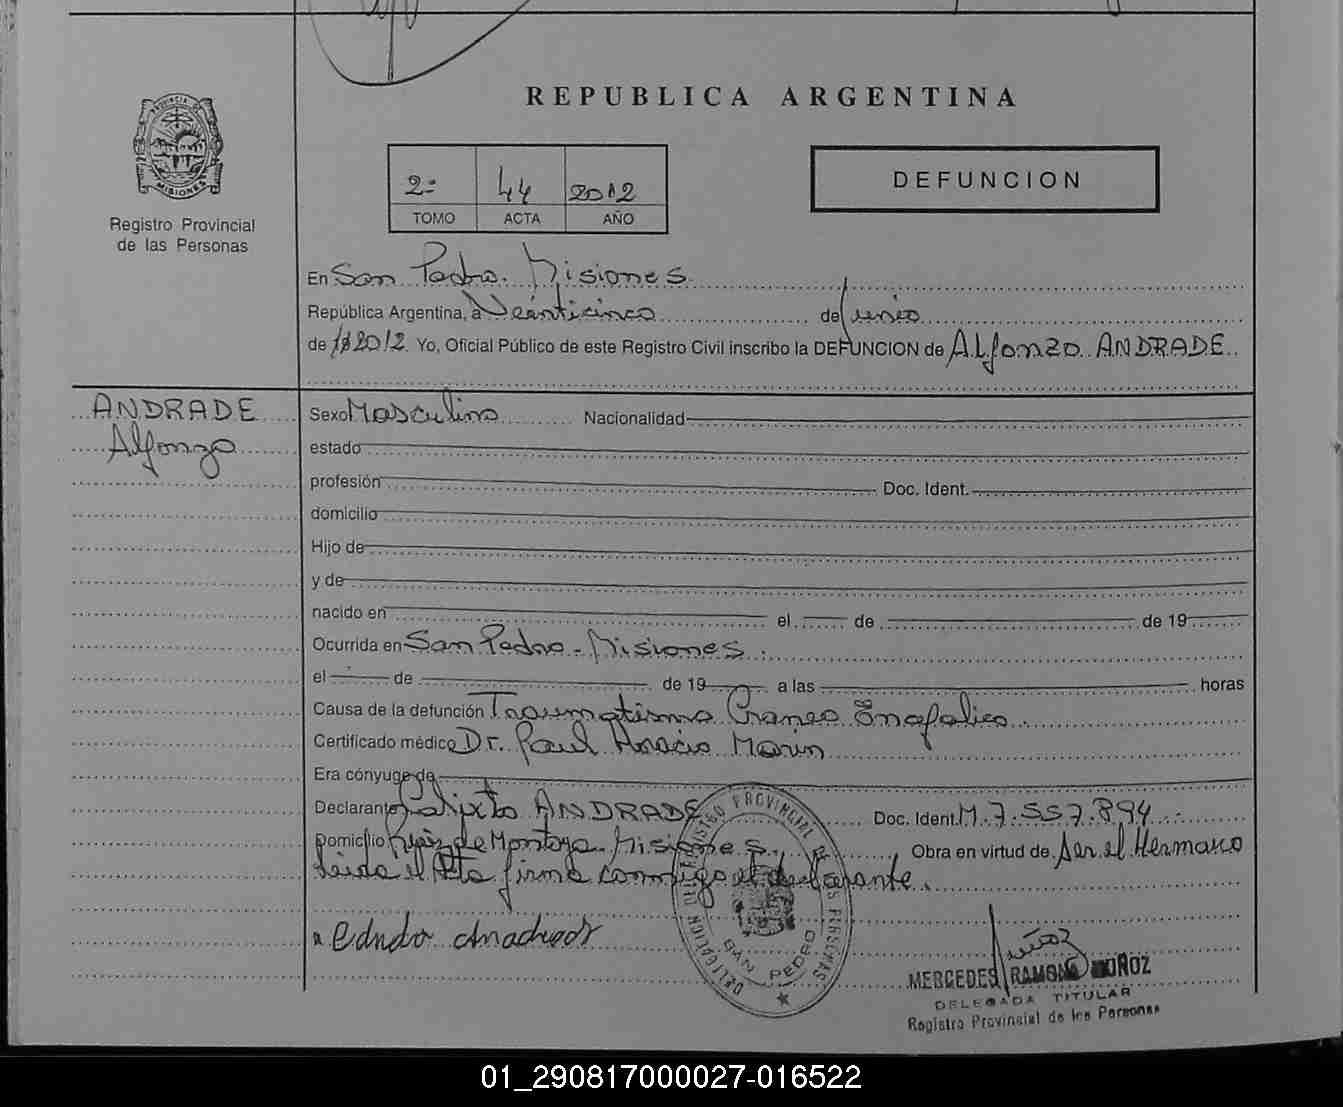 REPUBLICA ARGENTINA
PROVINCIA DE
MISIONES
Registro Provincial
de las Personas
2º 44 2012
TOMO ACTA AÑO
DEFUNCION
En San Pedro. Misiones
República Argentina, a Veinticinco de Junio
de 2012. Yo, Oficial Público de este Registro Civil inscribo la DEFUNCION de ALfonzo ANDRADE
ANDRADE
Alfonzo
Sexo Masculino Nacionalidad
estado
profesión Doc. Ident.
domicilio
Hijo de
y de
nacido en el de de 19
Ocurrida en San Pedro - Misiones.
el de de 19 a las horas
Causa de la defunción Traumatismo Craneo Enafalico
Certificado médico Dr. Paul Horacio Marin
Era cónyuge de
Declarante Calixto ANDRADE Doc. Ident. M.7.557.894
Domicilio Ruiz de Montoya. Misiones. Obra en virtud de Ser el Hermano
Leida el Acta firma conmigo el declarante.
DELEGACION DEL REGISTRO PROVINCIAL DE LAS PERSONAS
SAN PEDRO
MERCEDES RAMONA MUÑOZ
DELEGADA TITULAR
Registro Provincial de las Personas
01_290817000027-016522